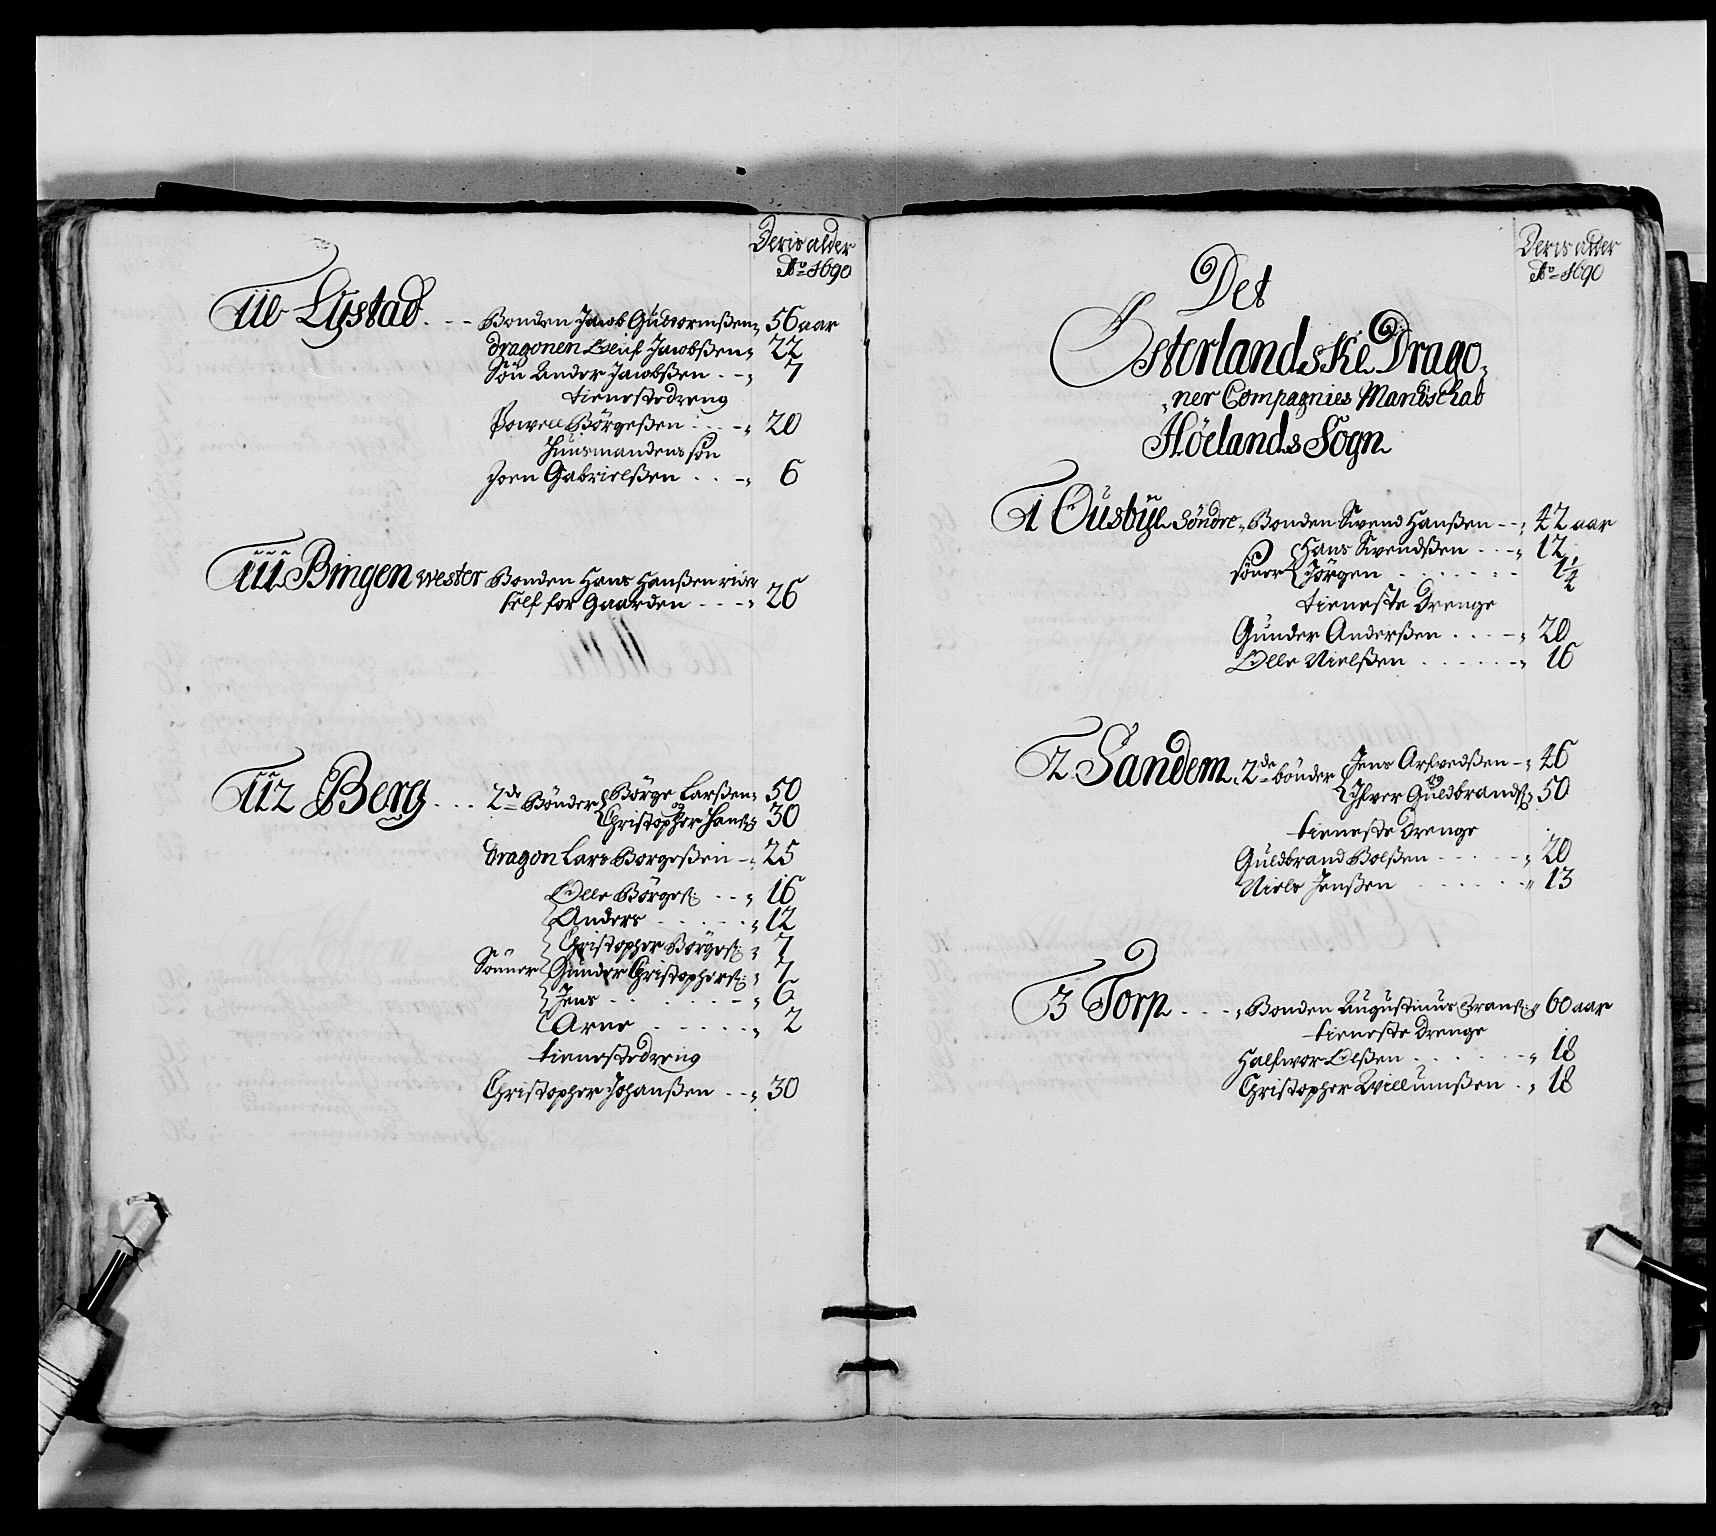 Deris alder
Ao 1690
110 Lystad. - - - Bonden Jacob Gudtormßen „ 56 aar
dragonen Oluf Jacobßen „ 22
Søn Ander Jacobßen . - „ 7
tienestedreng
Powell Børgeßen . . . - „ 20
Huusmandens søn
Joen Gabrielßen . . - „ 6
111 Bingen wester Bonden Hans Hanßen rider
self for Gaarden - - - „ 26
112 Berg . . . 2de Bønder Børge Larßen „ 50
og
Christopher Hanß: 30
dragon Lars Børgeßen - „ 25
Olle Børgeß: - - „ 16
Anders - - - - „ 12
Christopher Børgeß: „ 7
Sønner Gunder Christopherß: „ 7
Jens - - - - - - „ 6
Arne - - - - - „ 2
tienestedreng
Christopher Johanßen - - „ 30
Deris alder
Ao 1690
Det
Østerlandske Drago„
„ner Compagnies Mandschab
Höelands Sogn
1 Ousbye Søndre „ Bonden Swend Hanßen - - „ 42 aar
Hans Swendßen - - - „ 12
sönner Jörgen - - - - - - 1 1/2
tieneste Drenge
Gunder Anderßen . . . - „ 20
Olle Nielßen . . . . . - „ 16
2 Sandem „ 2de bönder Jens Arfwedßen - „ 46
og
Ifver Guldbrandß: 50
tieneste Drenge
Guldbrand Bolßen - - - - - „ 20
Niels Jenßen . . . . . . „ 13
3 Torp . . . - „ Bonden Augustinus Franß: „ 60 aar
tieneste Drenge
Halfwor Olßen . . . . . - „ 18
Christopher Willumßen . „ 18